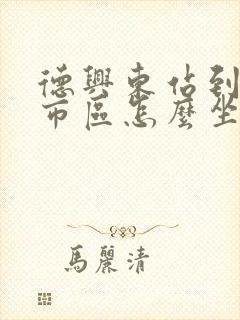 德興東佔到
市區怎麼坐
馬麗清